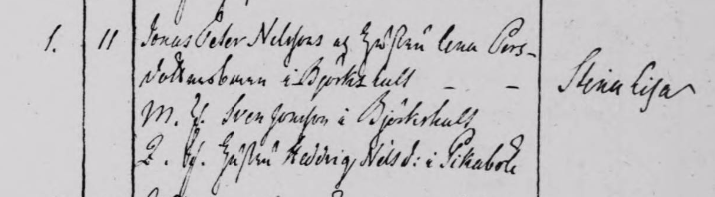 1. 11 Jonas Peter Nilssons och Hustru Lena Pers-
dotters barn i Björkehult - - Stina Lisa
M. H. Sven Jonsson i Björkehult
Q. H. Hustru Hedvig Nilsd: i Pikaboda